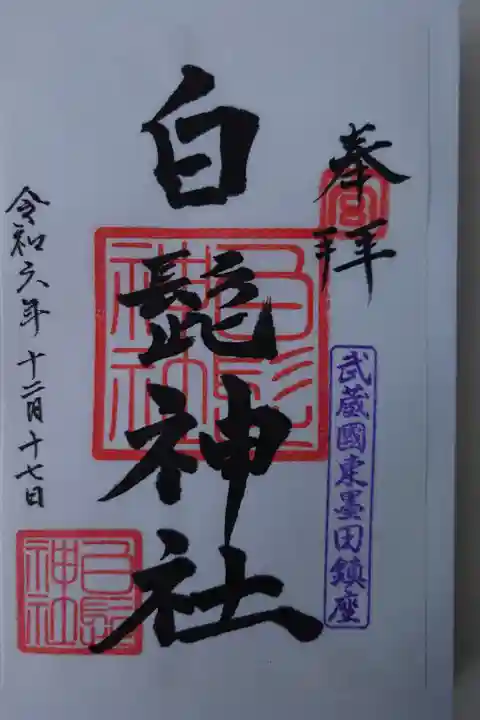 奉拝
武蔵國東墨田鎮座
白髭神社
白髭神社
令和六年十二月十七日
白髭神社